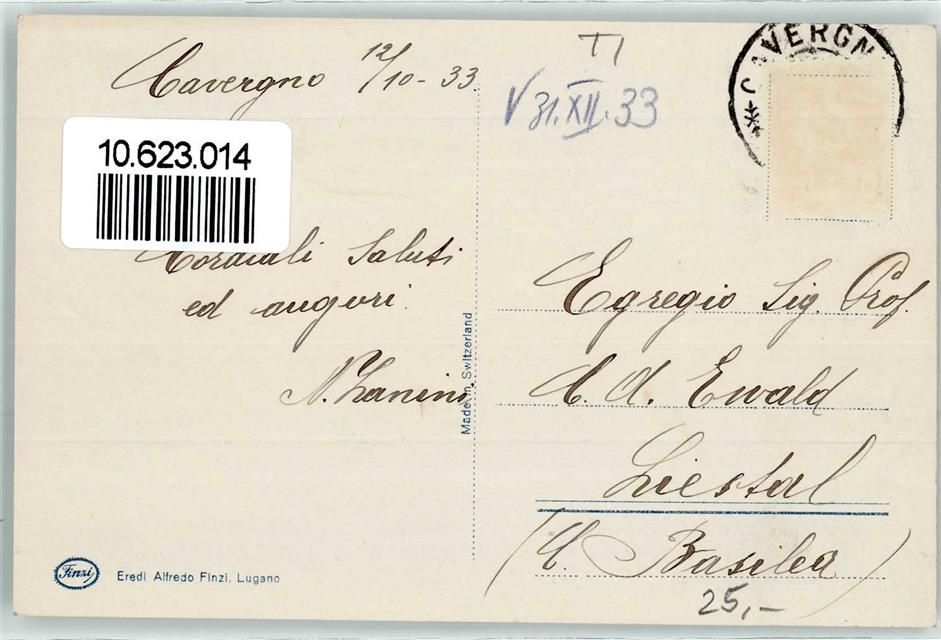 Cavergno 12/10-33.
10.623.014
Cordiali Saluti
ed auguri.
N. Zanini
Made in Switzerland
Finzi
Eredi Alfredo Finzi. Lugano
TI
V 31.XII.33
CAVERGN
Egregio Sig. Prof.
Ewald
Liestal
(C. Basilea)
25,-